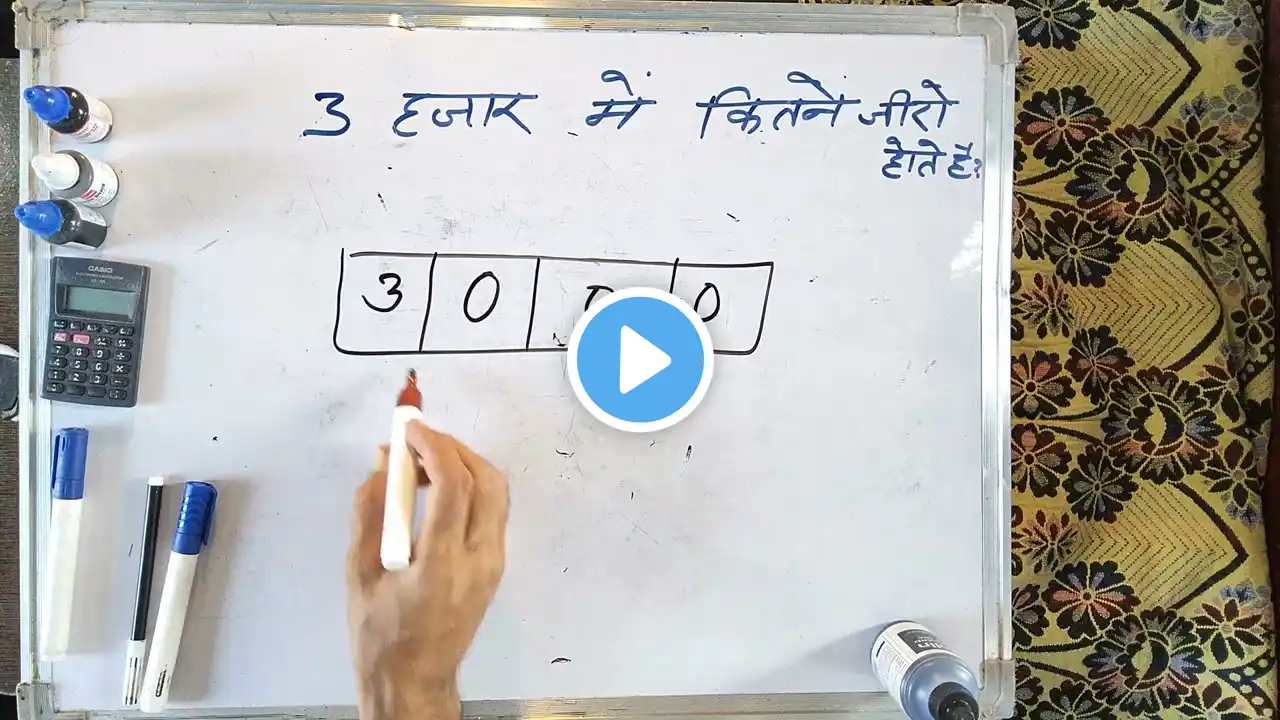 3 हजार में कितने जीरो
होते है?
3 0 0 0
CASIO